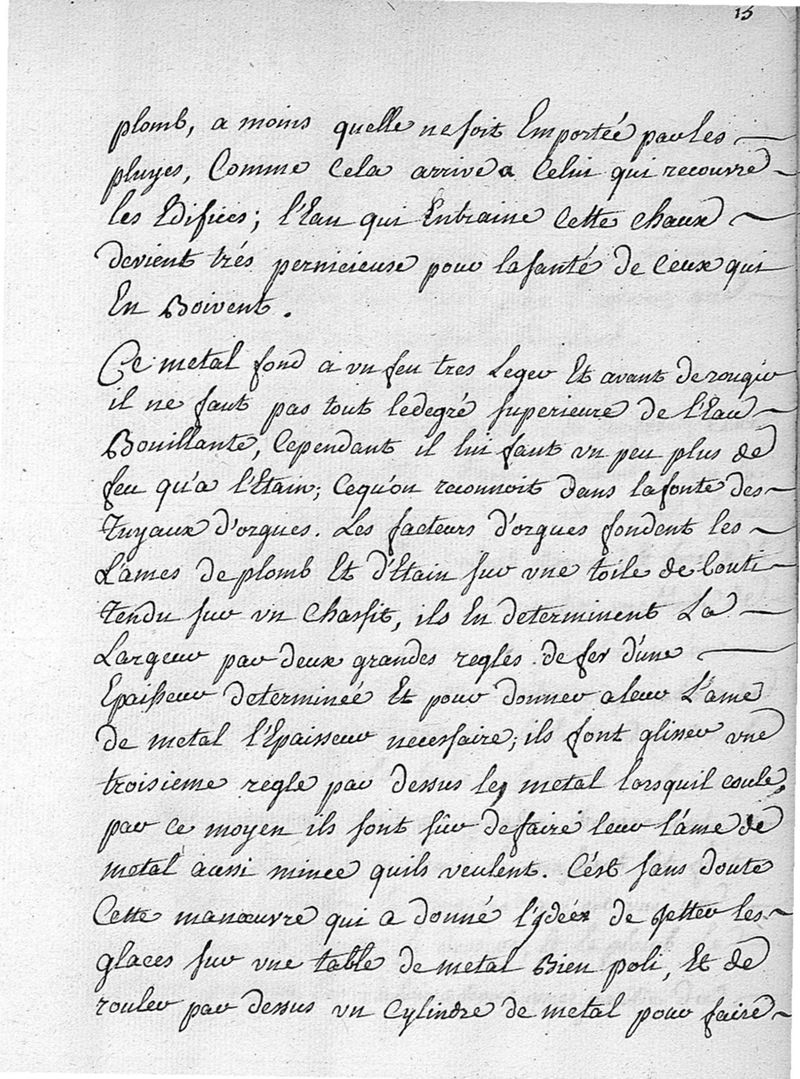 15
plomb, a moins quelle ne soit Emportée par les
pluyes, Comme Cela arrive a Celui qui recouvre
les Edifices; l'Eau qui Entraine Cette chaux
devient trés pernicieuse pour la santé de Ceux qui
En Boivent.
Ce metal fond a vn feu tres Leger Et avant de rougir
il ne faut pas tout le degré superieure de l'Eau
Bouillante, Cependant il lui faut vn peu plus de
feu qu'a l'Etain; Cequ'on reconnoit dans la fonte des
Tuyaux d'orgues. Les facteurs d'orgues fondent les
L'ames de plomb Et d'Etain sur vne toile de Couti
Tendu sur vn Chassit, ils En determinent La
Largeur par deux grandes regles de fer d'une
Epaisseur determinée Et pour donner a leur L'ame
de metal l'Epaisseur necessaire; ils font glisser vne
troisieme regle par dessus le metal lorsquil coule,
par ce moyen ils sont sûr de faire leur l'ame de
metal aussi mince quils veulent. C'est sans doute
Cette manœuvre qui a donné l'ydée de Jetter les
glaces sur vne table de metal Bien poli, Et de
rouler par dessus vn Cylindre de metal pour faire